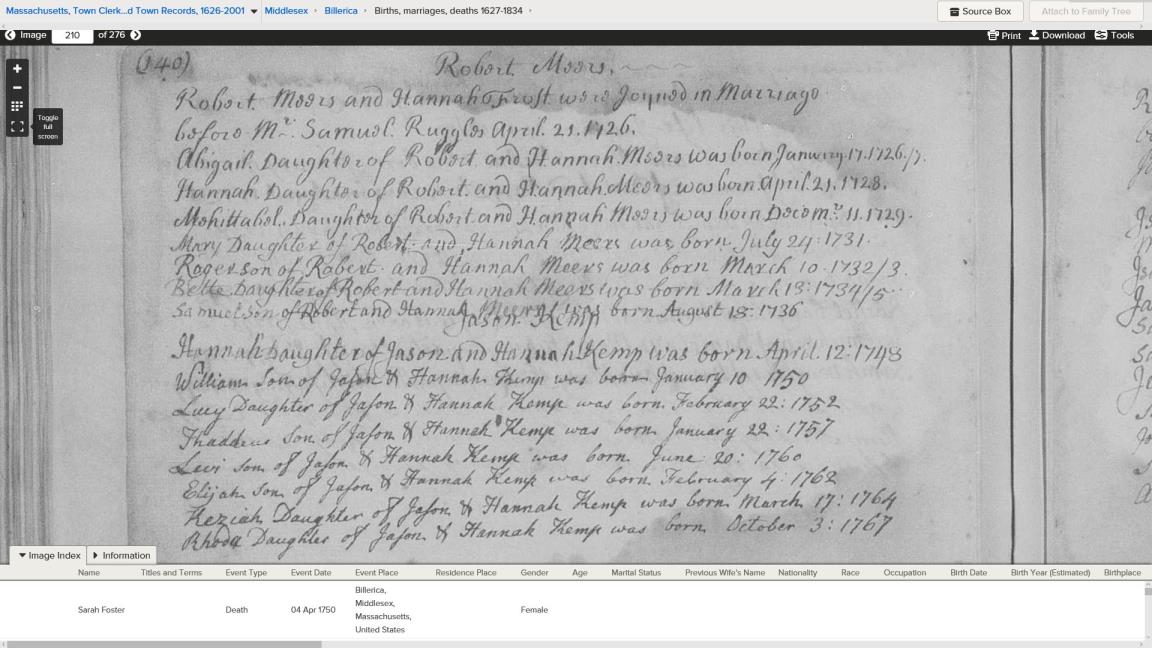 Massachusetts, Town Clerk...d Town Records, 1626-2001 Middlesex Billerica Births, marriages, deaths 1627-1834
Source Box
Attach to Family Tree
Image 210 of 276
Print Download Tools
Toggle full screen
(140) Robert Meers.
Robert Meers and Hannah Frost were Joyned in Marriage
before Mr. Samuel Ruggles April. 21. 1726.
Abigail. Daughter of Robert and Hannah. Meers was born January. 17. 1726/7.
Hannah. Daughter of Robert. and Hannah. Meers was born. April. 21. 1728.
Mehittabel. Daughter of Robert. and Hannah Meers was born Decemr. 11. 1729.
Mary Daughter of Robert. and Hannah Meers was born July 24: 1731.
Roger son of Robert. and Hannah Meers was born March 10. 1732/3.
Bette Daughter of Robert and Hannah Meers was born March 18: 1734/5
Samuel son of Robert and Hannah Meers was born August 18: 1736
Jason. Kemp
Hannah Daughter of Jason and Hannah Kemp was born April. 12: 1748
William Son of Jason & Hannah Kemp was born January 10 1750
Lucy Daughter of Jason & Hannah Kemp was born. February 22: 1752
Thaddeus Son of Jason & Hannah Kemp was born January 22: 1757
Levi son of Jason & Hannah Kemp was born June: 20: 1760
Elijah son of Jason & Hannah Kemp was born. February 4: 1762
Keziah Daughter of Jason & Hannah Kemp was born March 17: 1764
Rhoda Daughter of Jason & Hannah Kemp was born October 3: 1767
Image Index Information
Name Titles and Terms Event Type Event Date Event Place Residence Place Gender Age Marital Status Previous Wife's Name Nationality Race Occupation Birth Date Birth Year (Estimated) Birthplace
Sarah Foster Death 04 Apr 1750 Billerica, Middlesex, Massachusetts, United States Female